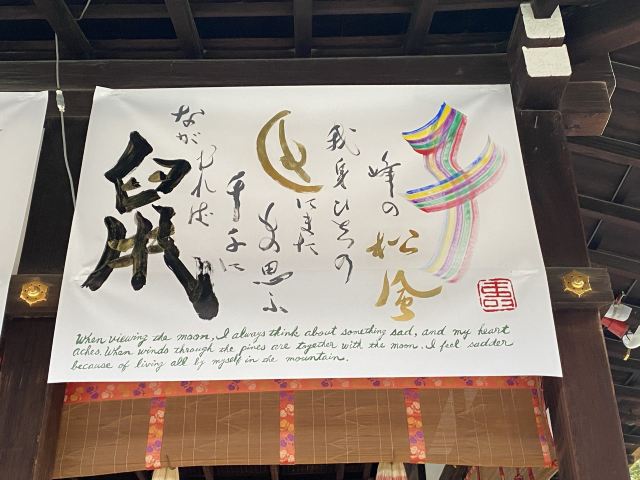 鼠
ながむれば
千々に
もの思ふ
月
にまた
我身ひとつの
峰の
松風
子
When viewing the moon, I always think about something sad, and my heart
aches. When winds through the pines are together with the moon, I feel sadder
because of living all by myself in the mountain.